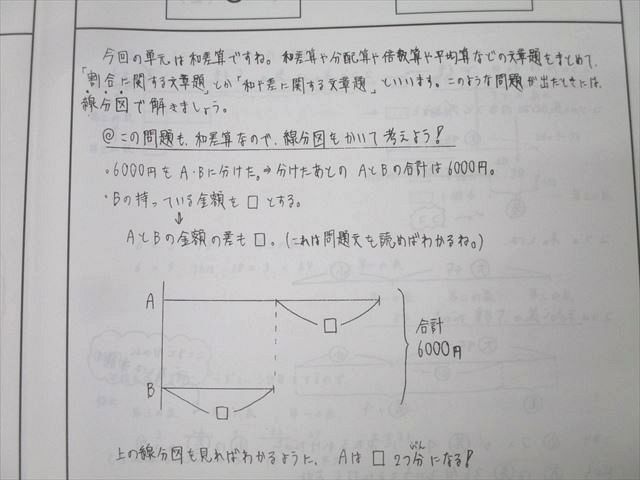 今回の単元は和差算ですね。和差算や分配算や倍数算や平均算などの文章題をまとめて、
「割合に関する文章題」とか「和や差に関する文章題」といいます。このような問題が出たときには、
線分図で解きましょう。
@この問題も、和差算なので、線分図をかいて考えよう!
・6000円をA・Bに分けた。⇒分けたあとのAとBの合計は6000円。
・Bの持っている金額を□とする。
↓
AとBの金額の差も□。(これは問題文を読めばわかるね。)
A
□
合計
6000円
B
□
上の線分図を見ればわかるように、Aは□2つ分になる!
ぶん